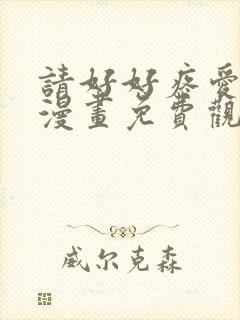 請好好疼愛
漫畫免費觀
威尔克森